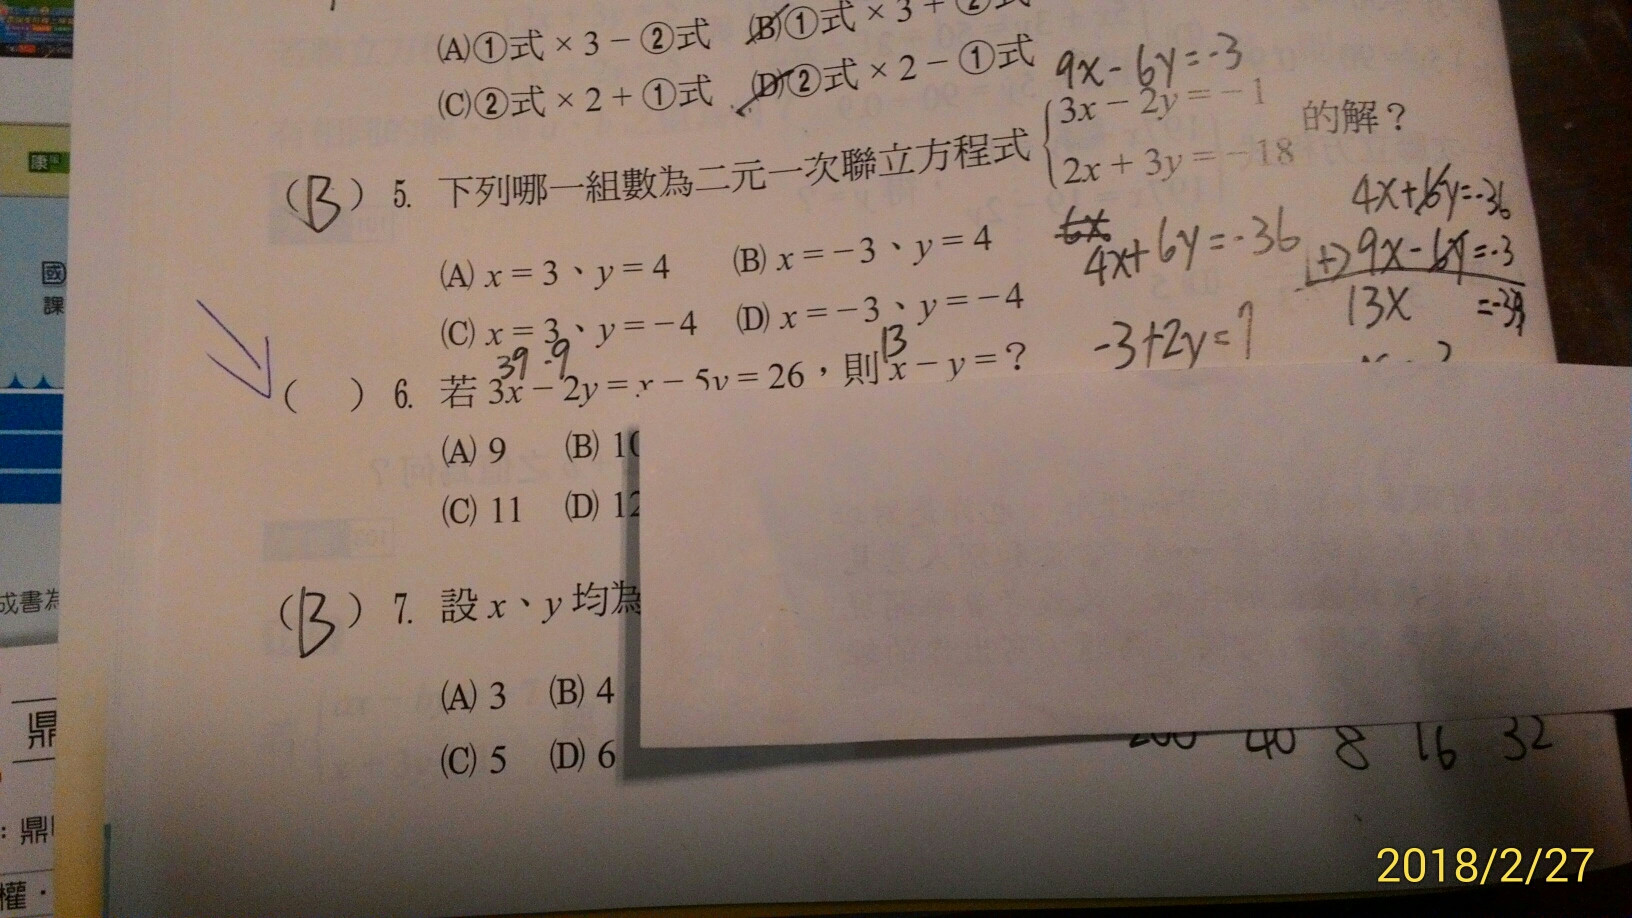 (A)①式 × 3 − ②式 (B)①式 × 3 + ②式
(C)②式 × 2 + ①式 (D)②式 × 2 − ①式
9x - 6y = -3
(B) 5. 下列哪一組數為二元一次聯立方程式 { 3x − 2y = −1
2x + 3y = −18 的解？
(A) x = 3、y = 4 (B) x = −3、y = 4
(C) x = 3、y = −4 (D) x = −3、y = −4
6x
4x + 6y = -36
4x + 6y = -36
+) 9x - 6y = -3
13x = -39
-3 + 2y =
39 -9 13
( ) 6. 若 3x − 2y = x − 5y = 26，則 x − y = ？
(A) 9 (B) 10
(C) 11 (D) 12
(B) 7. 設 x、y 均為
(A) 3 (B) 4
(C) 5 (D) 6
200 40 8 16 32
康
國
課
成書為
鼎
：鼎
權．
2018/2/27